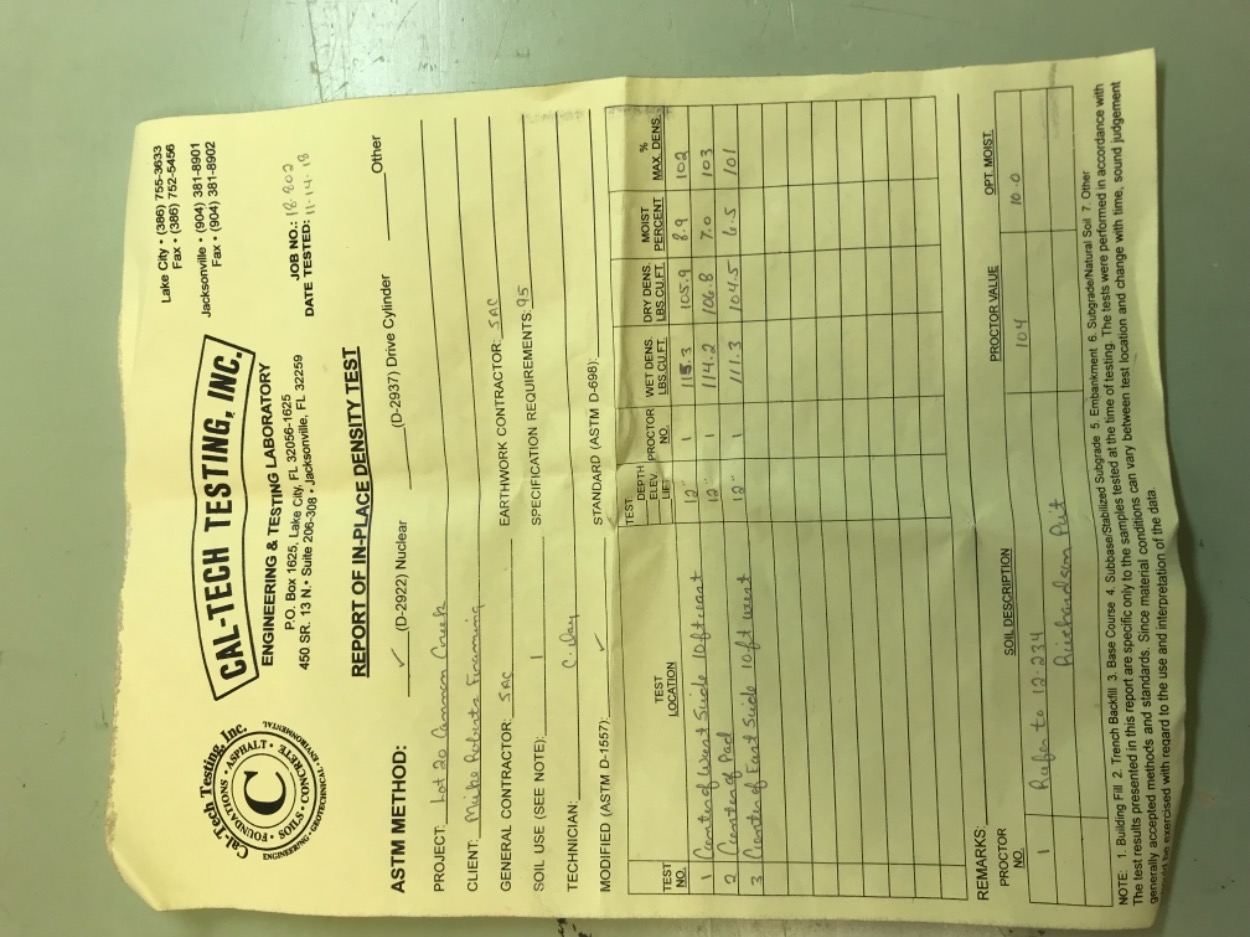 Cal-Tech Testing, Inc.
FOUNDATIONS • ASPHALT •
C
SOILS • CONCRETE
ENGINEERING • GEOTECHNICAL • ENVIRONMENTAL
CAL-TECH TESTING, INC.
ENGINEERING & TESTING LABORATORY
P.O. Box 1625, Lake City, FL 32056-1625
450 SR. 13 N. • Suite 206-308 • Jacksonville, FL 32259
Lake City • (386) 755-3633
Fax • (386) 752-5456
Jacksonville • (904) 381-8901
Fax • (904) 381-8902
JOB NO.: 18-802
DATE TESTED: 11-14-18
REPORT OF IN-PLACE DENSITY TEST
ASTM METHOD: ✓ (D-2922) Nuclear (D-2937) Drive Cylinder Other
PROJECT: Lot 20 Cannon Creek
CLIENT: Mike Roberts Framing
GENERAL CONTRACTOR: SAC EARTHWORK CONTRACTOR: SAC
SOIL USE (SEE NOTE): 1 SPECIFICATION REQUIREMENTS: 95
TECHNICIAN: C. Day
MODIFIED (ASTM D-1557): ✓ STANDARD (ASTM D-698):
TEST NO. TEST LOCATION TEST DEPTH ELEV. LIFT PROCTOR NO. WET DENS. LBS.CU.FT. DRY DENS. LBS.CU.FT. MOIST PERCENT % MAX. DENS.
1 Center of West Side 10ft east 12" 1 115.3 105.9 8.9 102
2 Center of Pad 12" 1 114.2 106.8 7.0 103
3 Center of East Side 10ft west 12" 1 111.3 104.5 6.5 101
REMARKS:
PROCTOR NO. SOIL DESCRIPTION PROCTOR VALUE OPT. MOIST.
1 Refer to 12-234 104 10.0
Richardson Pit
NOTE: 1. Building Fill 2. Trench Backfill 3. Base Course 4. Subbase/Stabilized Subgrade 5. Embankment 6. Subgrade/Natural Soil 7. Other
The test results presented in this report are specific only to the samples tested at the time of testing. The tests were performed in accordance with
generally accepted methods and standards. Since material conditions can vary between test location and change with time, sound judgement
be exercised with regard to the use and interpretation of the data.